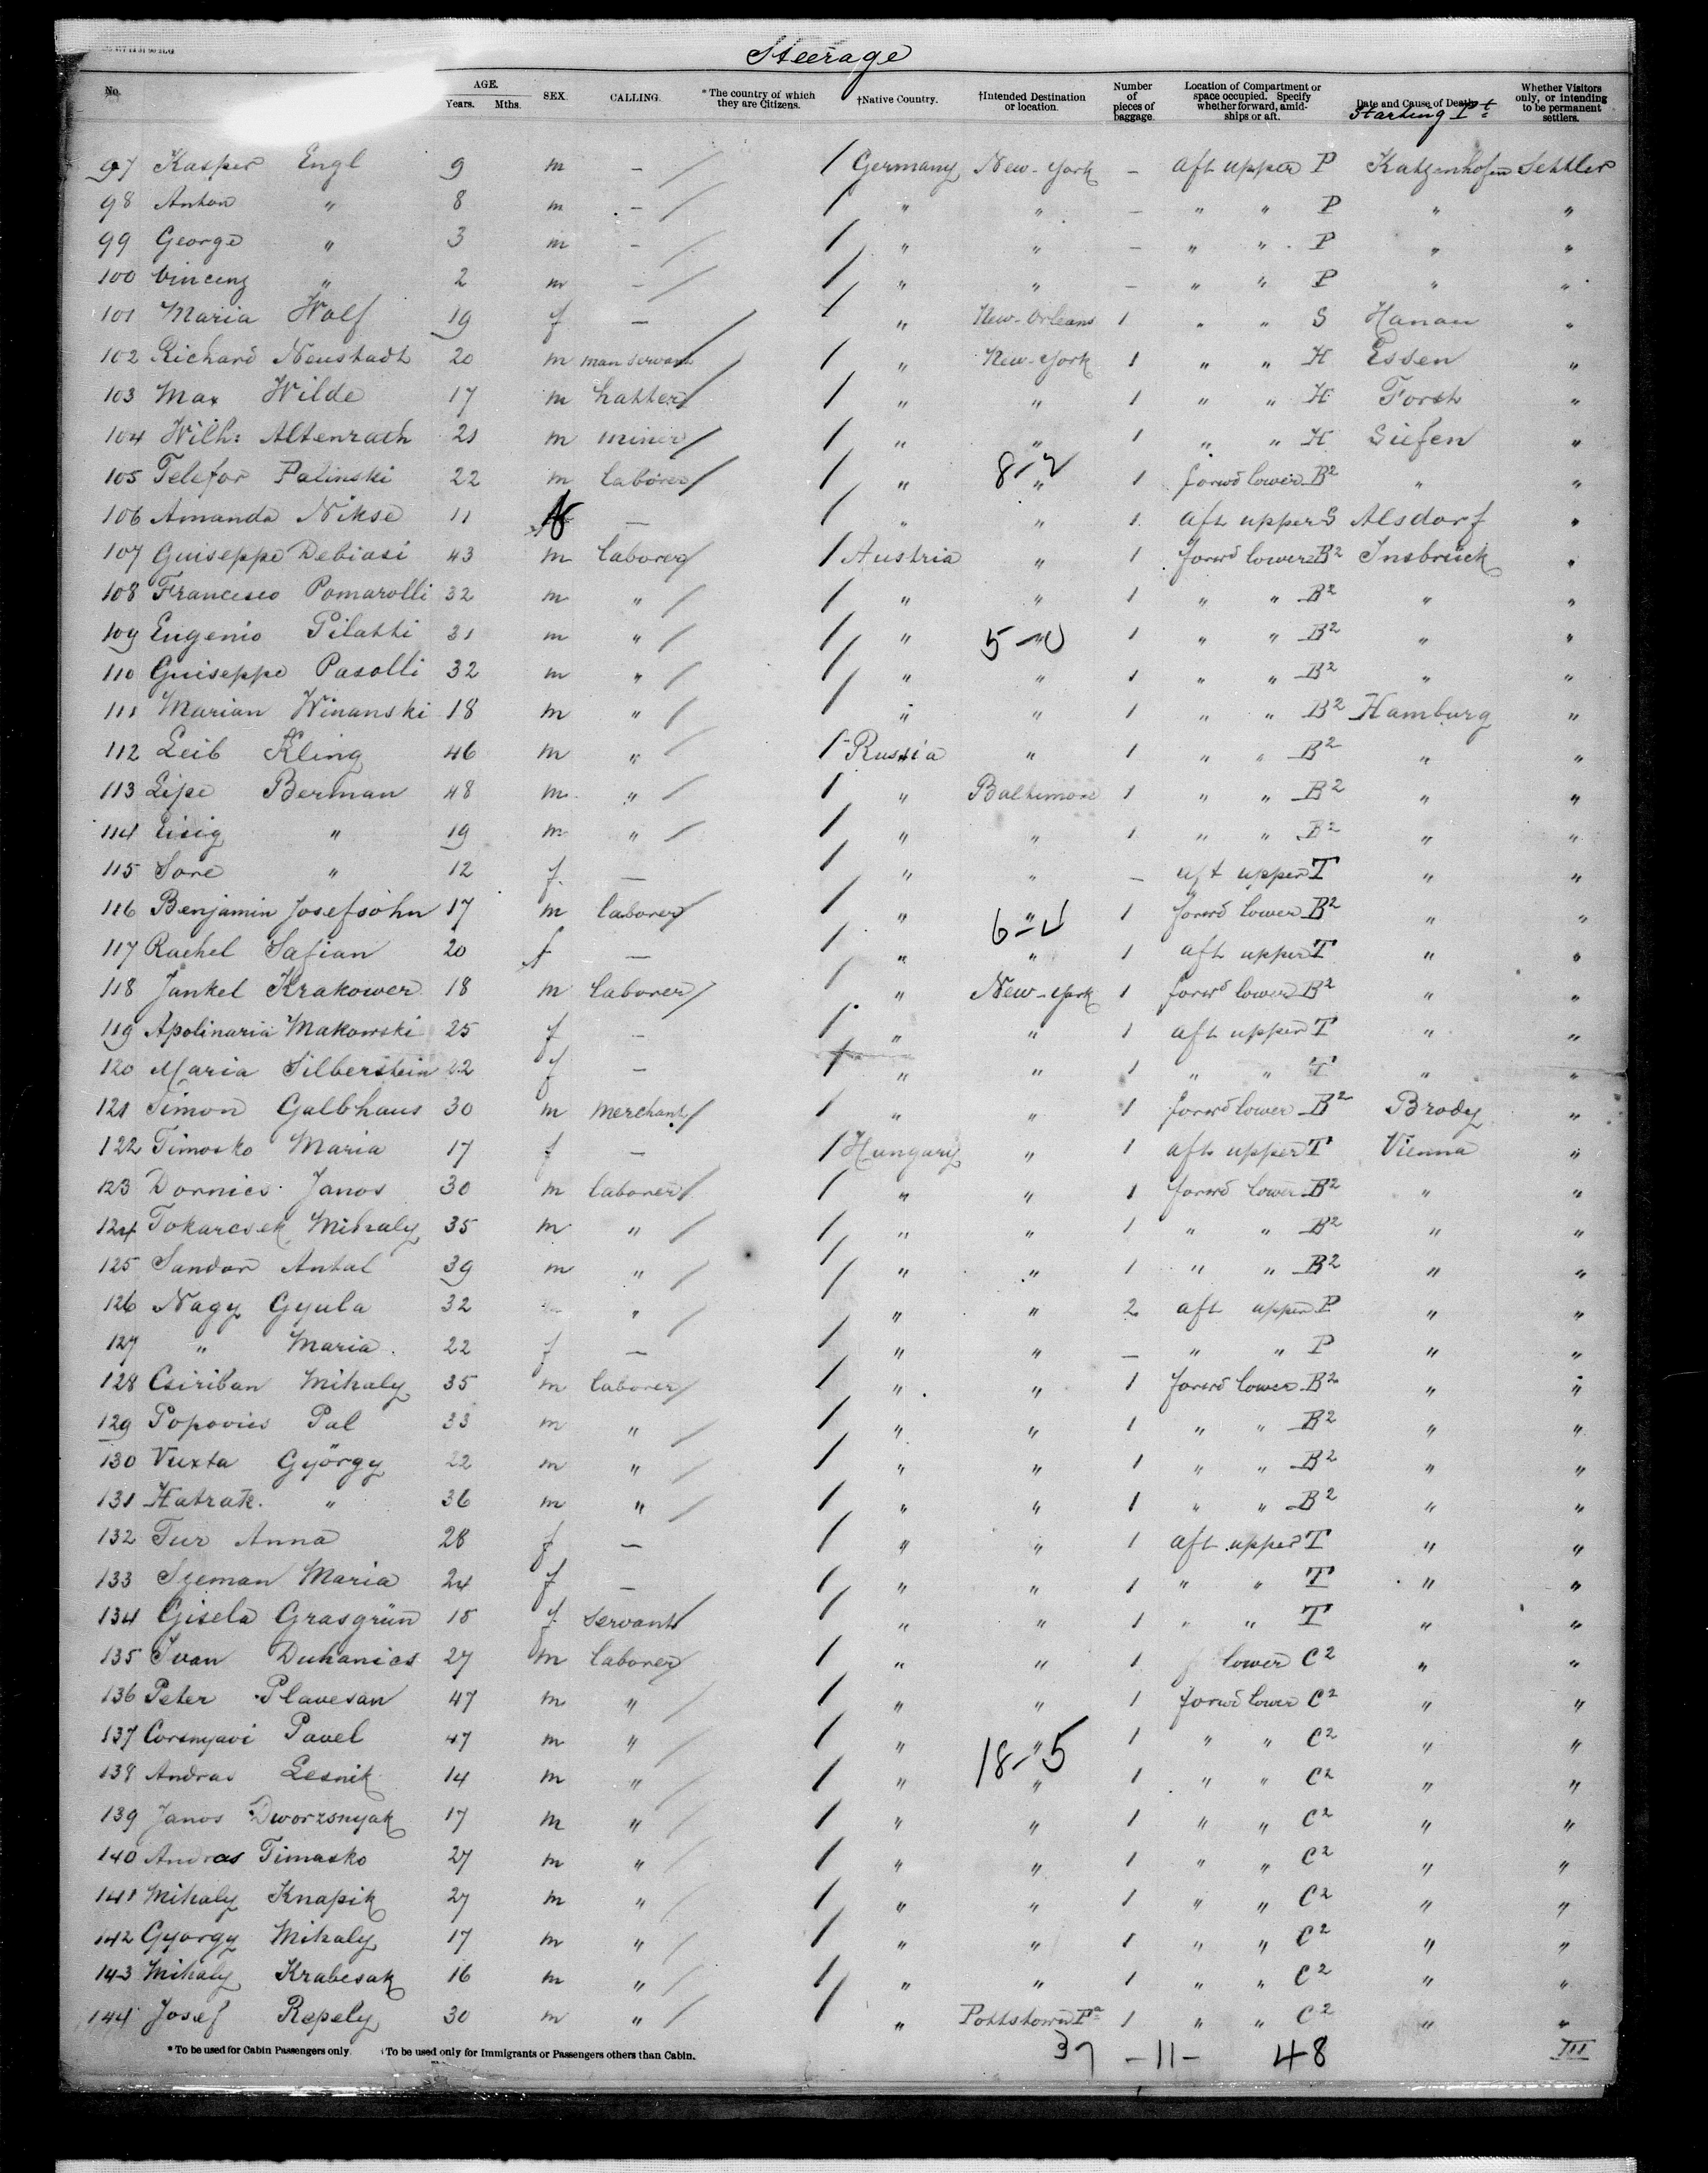 Steerage
No. AGE. Years. Mths. SEX. CALLING. *The country of which they are Citizens. †Native Country. †Intended Destination or location. Number of pieces of baggage. Location of Compartment or space occupied. Specify whether forward, amidships or aft. Date and Cause of Death. Starting Pt Whether Visitors only, or intending to be permanent settlers.
97 Kasper Engl 9 m - / / Germany New-York - aft upper P Katzenhofen Settler
98 Anton " 8 m - / / " " - " " P " "
99 George " 3 m - / / " " - " " P " "
100 Vincenz " 2 m - / / " " - " " P " "
101 Maria Wolf 19 f - / / " New-Orleans 1 " " S Hanau "
102 Richard Neustadt 20 m man servant / / " New-York 1 " " H Essen "
103 Max Wilde 17 m hatter / / " " 1 " " H Forst "
104 Wilh: Altenrath 21 m miner / / " " 1 " " H Siefen "
105 Telefor Palinski 22 m laborer / / " " 8-2 1 forwd lower B2 " "
106 Amanda Nikse 11 f - / " " 1 aft upper S Alsdorf "
107 Guiseppe Debiasi 43 m laborer / / Austria " 1 forwd lower B2 Insbrück "
108 Francesco Pomarolli 32 m " / / " " 1 " " B2 " "
109 Eugenio Pilatti 31 m " / / " " 5-0 1 " " B2 " "
110 Guiseppe Pasolli 32 m " / / " " 1 " " B2 " "
111 Marian Winanski 18 m " / / " " 1 " " B2 Hamburg "
112 Leib Kling 46 m " / / Russia " 1 " " B2 " "
113 Lipe Berman 48 m " / / " Baltimore 1 " " B2 " "
114 Eisig " 19 m " / / " " 1 " " B2 " "
115 Sore " 12 f - / " " - aft upper T " "
116 Benjamin Josefsohn 17 m laborer / / " " 1 forwd lower B2 " "
117 Rachel Safian 20 f - / " " 1 aft upper T " "
118 Jankel Krakower 18 m laborer / / " New-York 1 forwd lower B2 " "
119 Apolinaria Makowski 25 f - / " " 1 aft upper T " "
120 Maria Silberstein 22 f - / " " 1 " " T " "
121 Simon Galbhaus 30 m merchant / / " " 1 forwd lower B2 Brody "
122 Timosko Maria 17 f - / Hungary " 1 aft upper T Vienna "
123 Dornics Janos 30 m laborer / / " " 1 forwd lower B2 " "
124 Tokarcsek Mihaly 35 m " / / " " 1 " " B2 " "
125 Sandor Antal 39 m " / / " " 1 " " B2 " "
126 Nagy Gyula 32 m " / / " " 2 aft upper P " "
127 " Maria 22 f - / " " - " " P " "
128 Csiriban Mihaly 35 m laborer / / " " 1 forwd lower B2 " "
129 Popovics Pal 33 m " / / " " 1 " " B2 " "
130 Vuxta György 22 m " / / " " 1 " " B2 " "
131 Hatrak " 36 m " / / " " 1 " " B2 " "
132 Tur Anna 28 f - / " " 1 aft upper T " "
133 Szeman Maria 24 f - / " " 1 " " T " "
134 Gisela Grasgrün 15 f servant / / " " 1 " " T " "
135 Ivan Duhanics 27 m laborer / / " " 1 lower C2 " "
136 Peter Plavesan 47 m " / / " " 1 forwd lower C2 " "
137 Corsnyavi Pavel 47 m " / / " " 18-5 1 " " C2 " "
138 Andras Lesnik 14 m " / / " " 1 " " C2 " "
139 Janos Dworzsnyak 17 m " / / " " 1 " " C2 " "
140 Andras Timasko 27 m " / / " " 1 " " C2 " "
141 Mihaly Knapik 27 m " / / " " 1 " " C2 " "
142 Gyorgy Mihaly 17 m " / / " " 1 " " C2 " "
143 Mihaly Krabcsak 16 m " / / " " 1 " " C2 " "
144 Josef Repely 30 m " / / " Pottstown Pa 1 " " C2 " "
*To be used for Cabin Passengers only. †To be used only for Immigrants or Passengers others than Cabin. 37 -11- 48 III